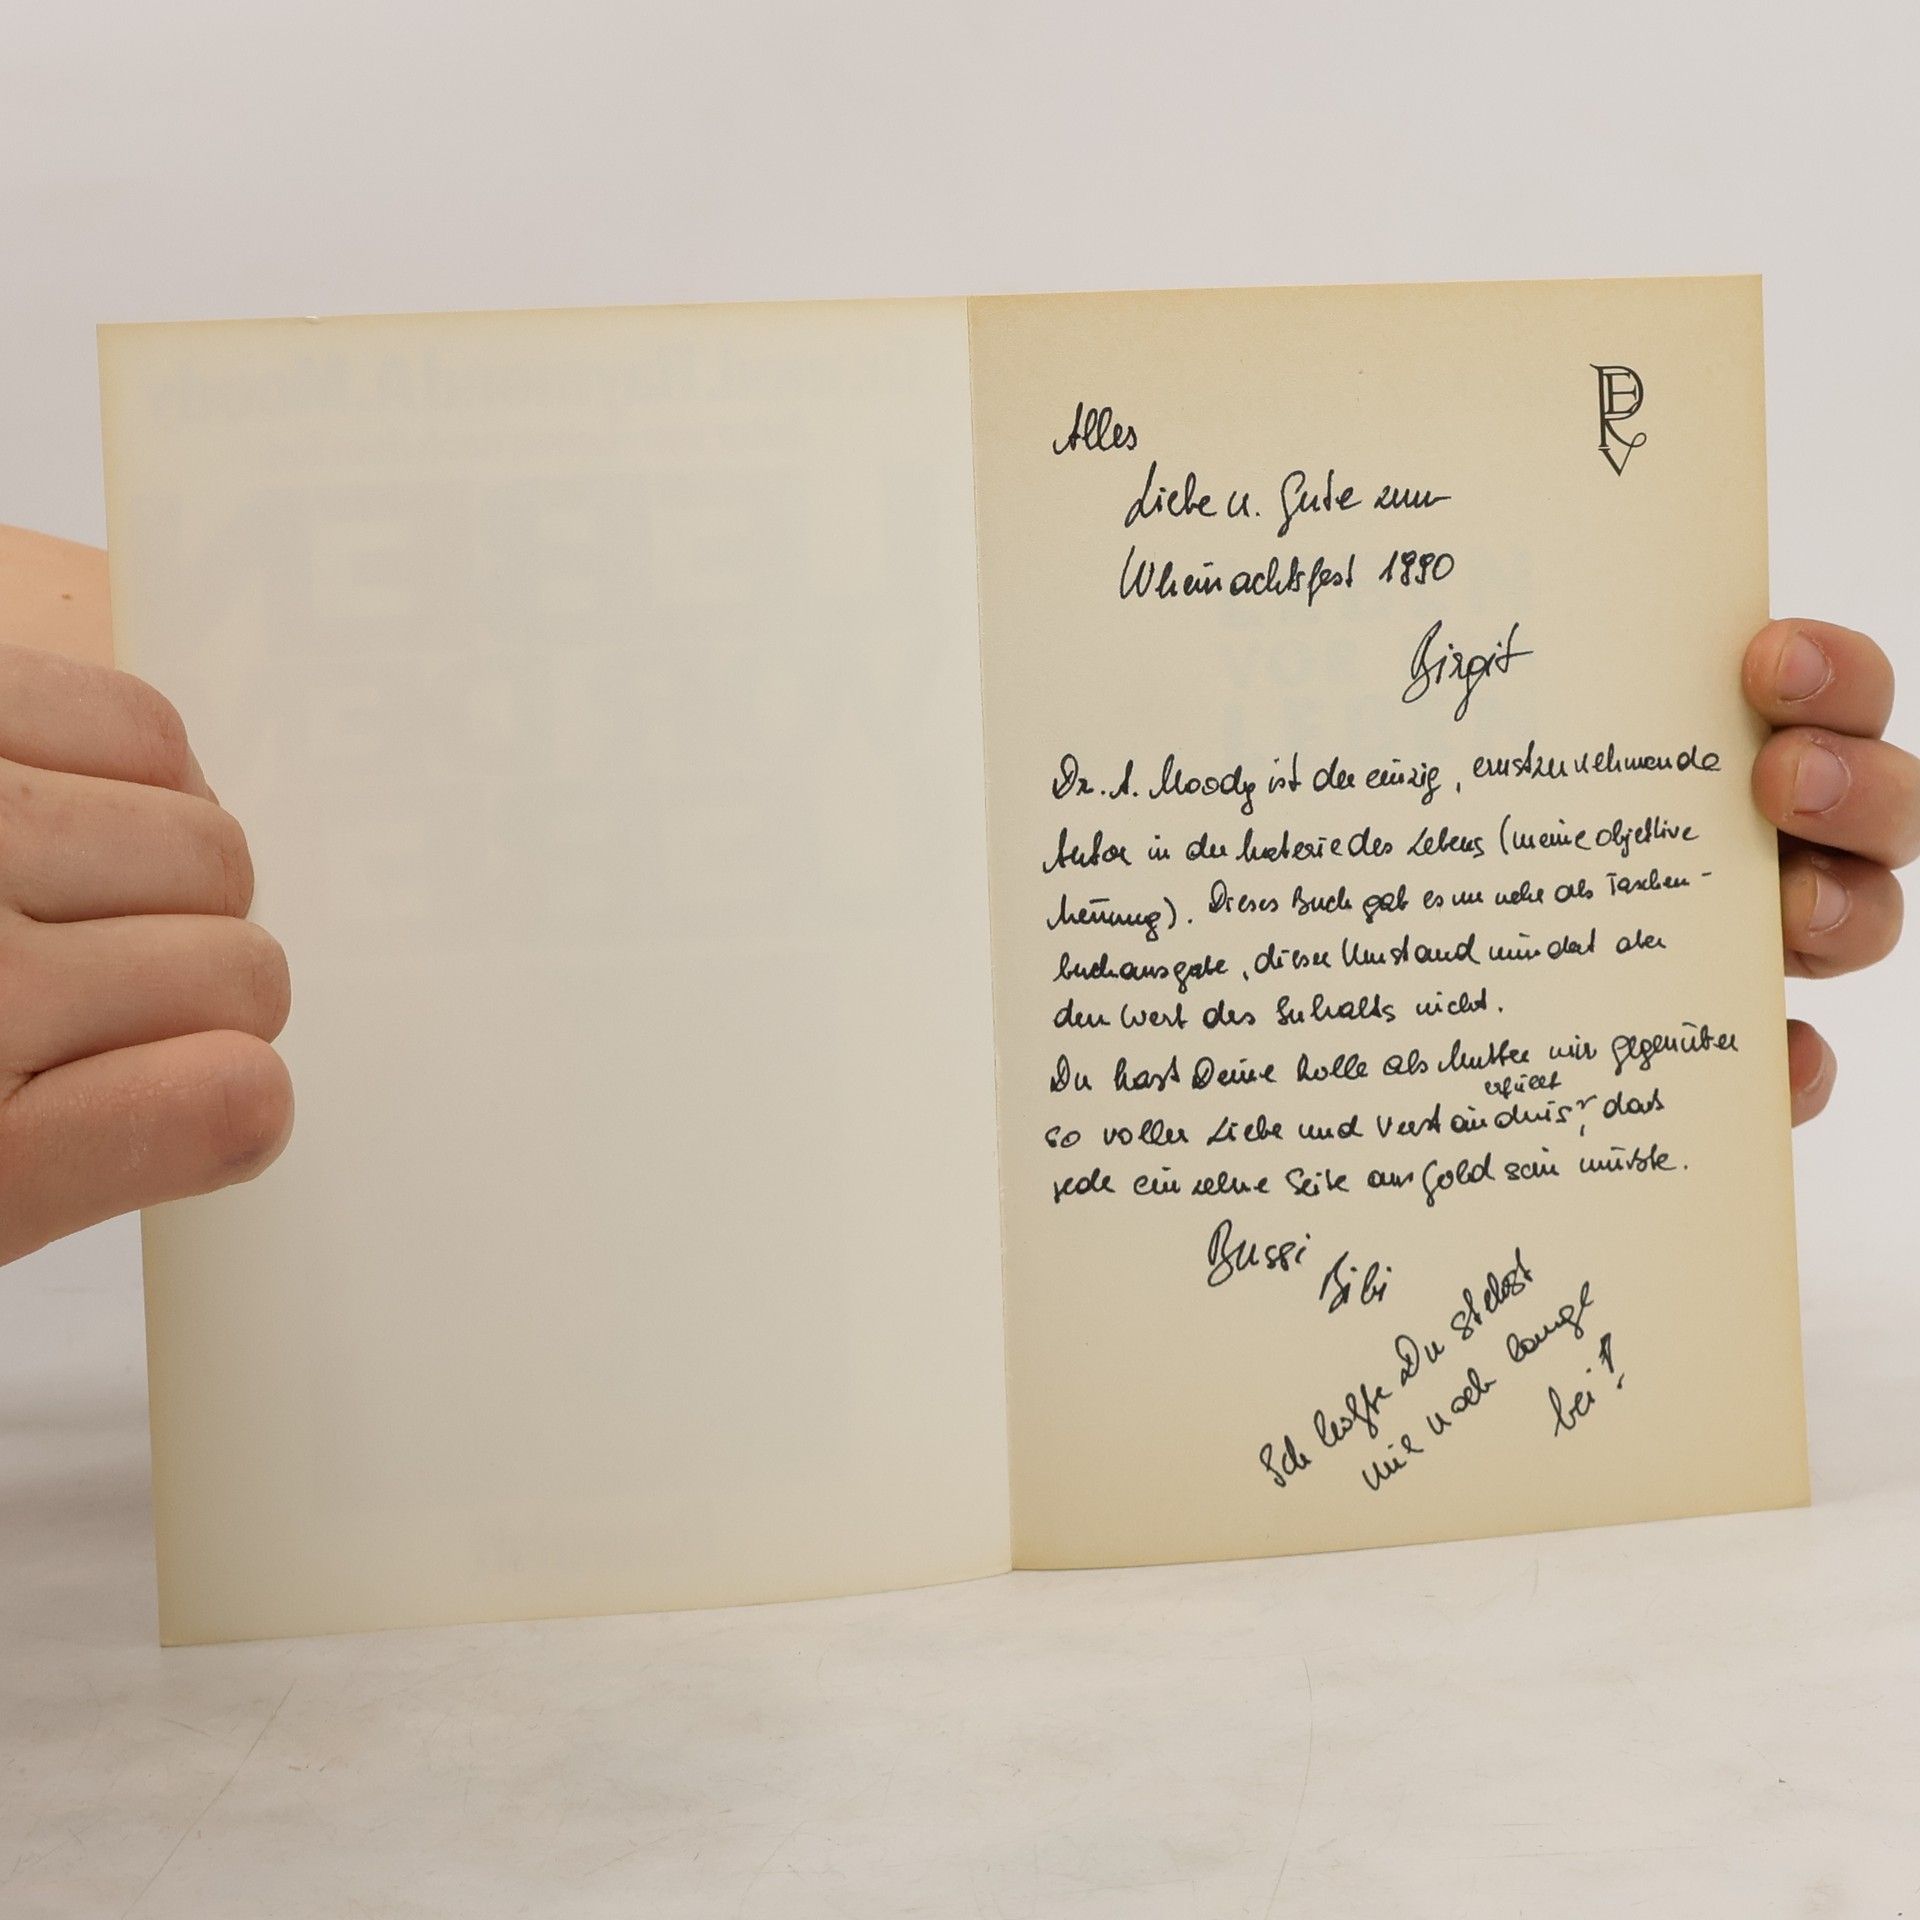 PERV
Alles
Liebe u. Gute zum
Wheinachtsfest 1990
Birgit
Dr. A. Moody ist der einzig, ernstzunehmende
Autor in der Materie des Lebens (meine objektive
Meinung). Dieses Buch gab es nur mehr als Taschen-
buchausgabe, dieser Umstand mindert aber
den Wert des Inhalts nicht.
Du hast Deine Rolle als Mutter mir gegenüber
erfüllt
so voller Liebe und Verständnis, das
jede einzelne Seite aus Gold sein müßte.
Bussi
Bibi
Ich hoffe Du stehst
mir noch lange
bei!